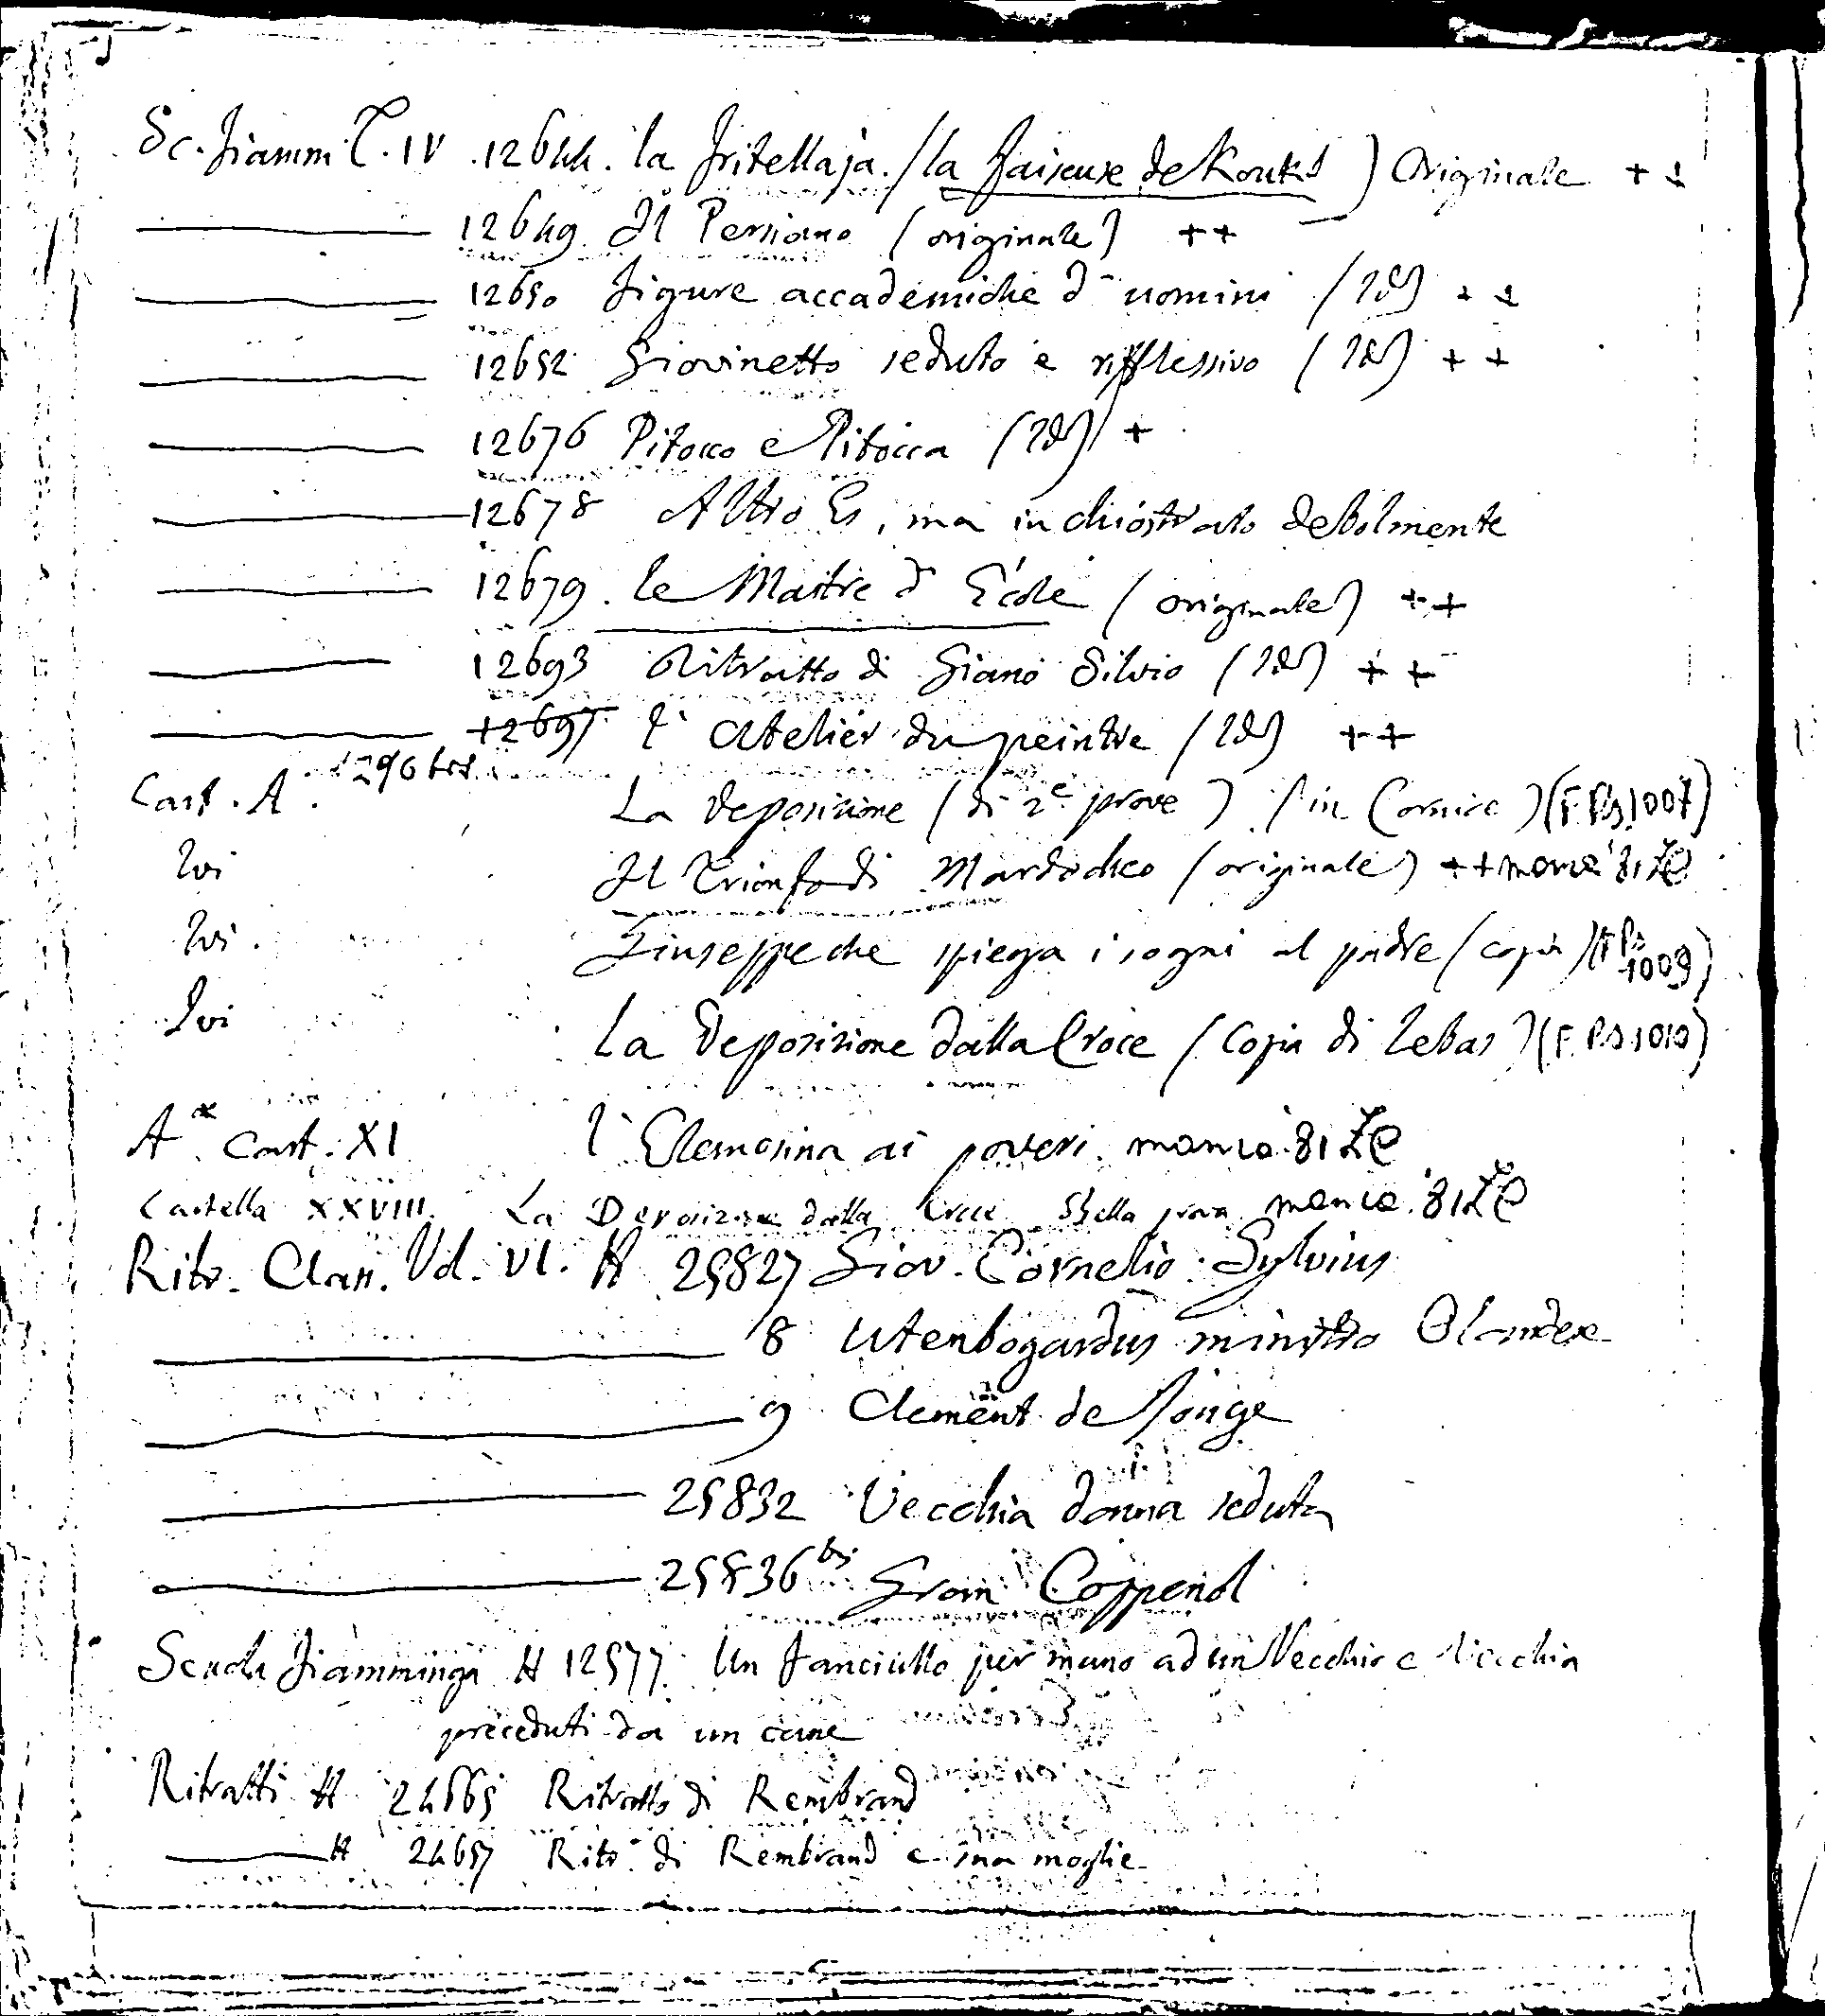 Sc. Fiamm. T. IV. 12644. la Fritellaja. (la faiseuse de Kouks) Originale ++
12649. Il Persiano (originale) ++
12650 Figure accademiche d'uomini (Id) ++
12652 Giovinetto seduto e riflessivo (Id) ++
12676 Pitocco e Pitocca (Id) +
12678 Altro Es, ma inchiostrato debolmente
12679. le Maitre d'École (originale) ++
12693 Ritratto di Giano Silvio (Id) ++
12697 l'Atelier du peintre (Id) ++
Cart. A. 1296 bis La Deposizione (di 2e prove) (in Cornice) (F.P.S. 1007)
Ivi Il Trionfo di Mardocheo (originale) ++ manca '81 ZC
Ivi. Giuseppe che spiega i sogni al padre (copia) (F.P.S. 1009)
Ivi La Deposizione dalla Croce (Copia di Lebas) (F.P.S. 1010)
A Cart. XI l'Elemosina ai poveri. manca '81 ZC
Cartella XXVIII. La Deposizione dalla Croce. Bella prova manca '81 ZC
Ritr. Clas. Vol. VI. N 25827 Giov. Cornelio Sylvius
8 Utenbogardus ministro Olandese
9 Clement de Jonge
25832 Vecchia donna seduta
25836 bis Gran Coppenol
Scuola Fiamminga N 12577. Un Fanciullo per mano ad un Vecchio e Vecchia
preceduti da un cane
Ritratti N 24665 Ritratto di Rembrand
N 24657 Ritr. di Rembrand e sua moglie